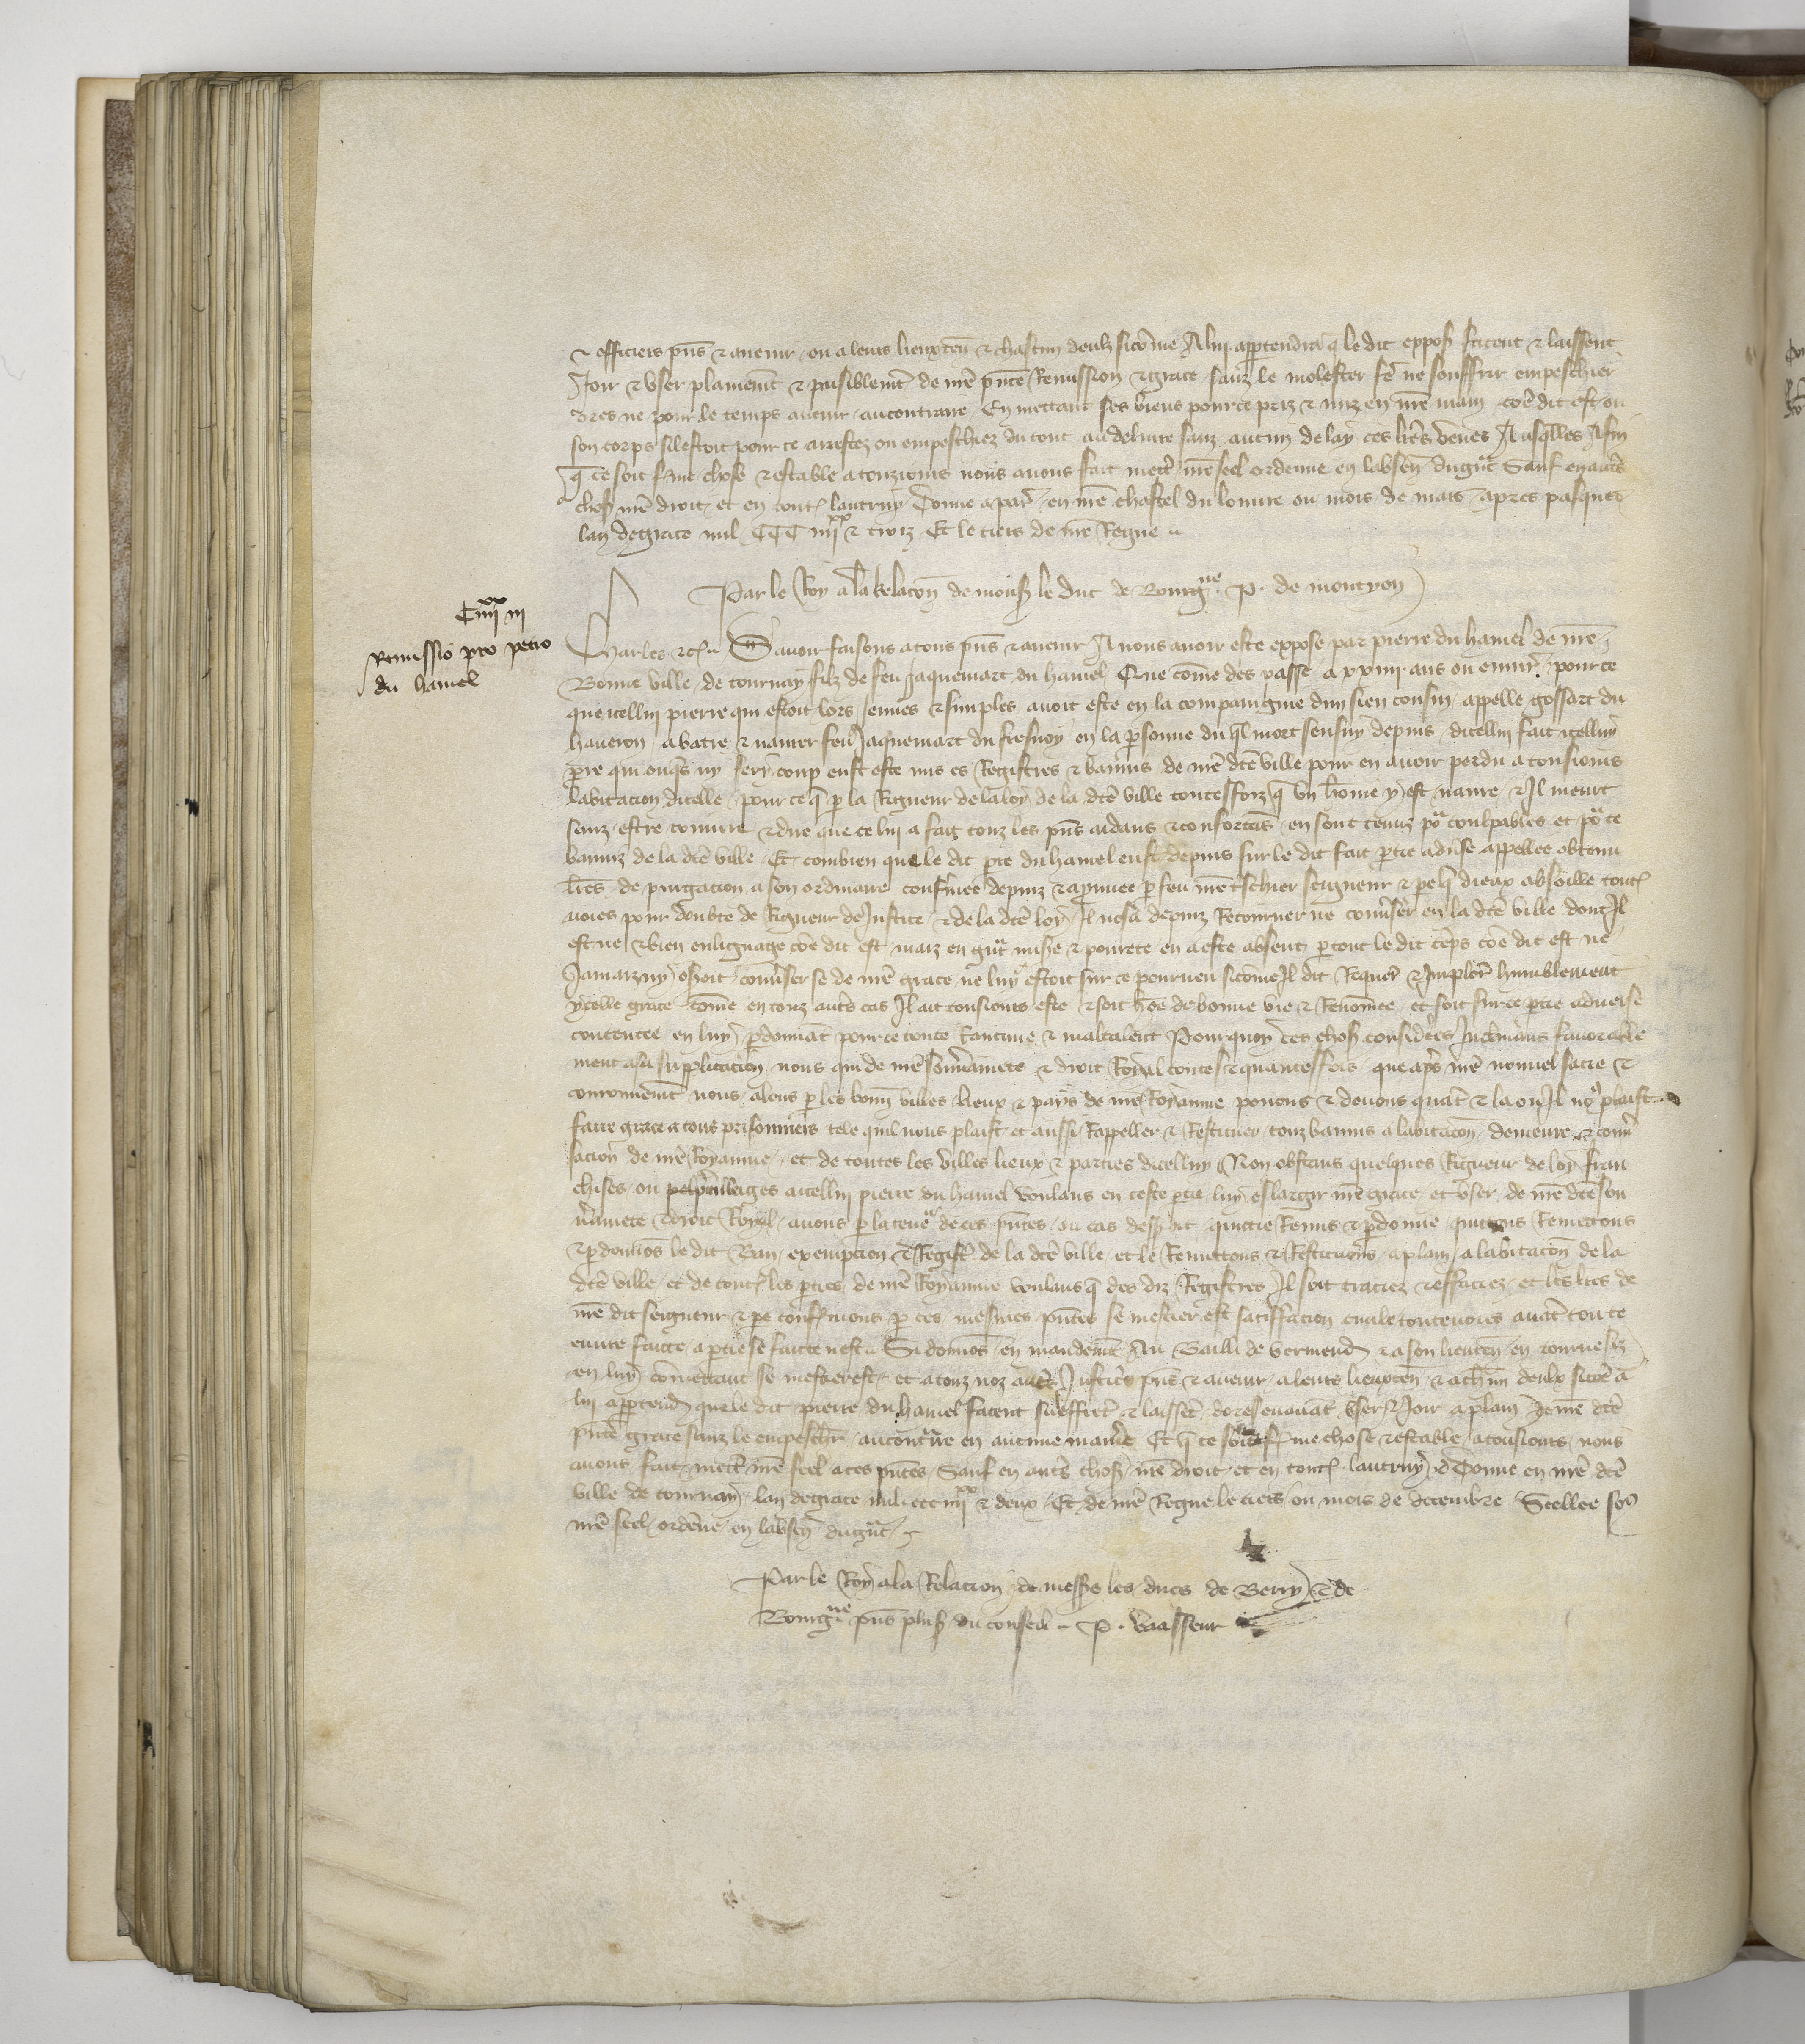 & officiers pñs & avenir ou a leurs lieuxten̄ & chascun deulz sicõme A lui appartendra q̃ le dit expos̃ facent & laissent
Joir & user plainem̃t & paisiblem̃t de nr̃e pñte Remission & grace sanz le molester fẽ ne souffrir empeschier
ores ne pour le temps avenir au contraire En mettant ses biens pour ce priz & miz en nr̃e main cõe dit est ou
son corps sil estoit pour ce arrestez ou empeschiez du tout au delivre sanz aucun delay ces lr̃es veues Ausq̃lles Afin
q̃ ce soit ferme chose & estable a touzjours nous avons fait mettr̃ nr̃e seel ordenne en labsen̄ du grãt Sauf en autr̃
chos̃ nr̃e droit et en tout̃ lautruy Donne a par̃ en nr̃e chastel du louvre ou mois de mars apres pasques
lan de grace mil CCC iiii xx & troiz Et le tiers de nr̃e Regne
Par le Roy a la Relacõn de mons̃ le duc de Bourg ne P. de montyon
C iiii xx iii
Remissio pro petro
du hamel
Charles &c̃ Savoir faisons a tous pñs & avenir A nous avoir este expose par pierre du hamel de nr̃e
Bonne ville de tournay filz de feu Jaquemart du hamel Que cõme des passe a xxiiii ans ou envir̃ pour ce
que icellui pierre qui estoit lors jeunes & simples avoit este en la compaingnie dun sien cousin appelle gossart du
haveron a batre & navrer feu Jaquemart du fresnoy en la p̃sonne du q̃l mort sensuy depuis dicellui fait icelluy
p̃re qui onq̃s ny fery coup eust este mis es Registres & bannis de nr̃e dc̃e ville pour en avoir perdu a tousjours
labitacion dicelle pour ce q̃ p̃ la Rigueur de la loy de la dc̃e ville toutesfoiz q̃ un hõme y est navre & Il meurt
sanz estre couvre & dire que ce lui a fait touz les pñs aidans & confortãs en sont tenuz po^r coulpables et po^r ce
banniz de la dc̃e ville Et combien que le dit p̃re du hamel eust depuis sur le dit fait p̃tie adṽse appellee obtenu
lr̃es de purgacion a son ordinaire conf̃mee depuiz & apruvee p̃ feu nr̃e t̃schier seigneur & p̃e q̃ dieux absoille tout̃
voies pour doubte de Rigueur de Justice & de la dc̃e loy Il nosa depuiz Retourner ne conṽser en la dc̃e ville dont Il
est ne & bien enlignage cõe dit est maiz en grãt misẽ & povrete en a este absent p̃ tout le dit tẽps cõe dit est ne
Jamaiz ny oseroit conṽser se de nr̃e grace ne luy estoit sur ce pourveu sicõme Il dit Requer̃ & Implor̃ humblement
ycelle grace cõme en touz autr̃s cas Il ait tousjours este & soit hõe de bonne vie & Renõmee et soit sur ce p̃tie adverse
contentee en luy p̃donnãt pour ce toute Rancune & maltalent Pourquoy ces chos̃ considerees Inclinans favorable
ment a sa supplicacion nous qui de nr̃e souṽainete & droit Royal toutes & quantesfois que ap̃s nr̃e nouvel sacre &
couronnem̃t nous alons p̃ les bonñ villes lieux & pays de nr̃e Royaume povons & devons quãt & la ou Il no^s plaist
faire grace a tous prisonniers tele quil nous plaist et aussi Rappeller & Restituer touz bannis a labitacõn demeure & conṽ
sacion de nr̃e Royaume et de toutes les villes lieux & parties dicelluy Non obstans quelques Rigueur de loy fran
chises ou previleiges a icellui pierre du hamel voulans en ceste p̃tie luy eslargir nr̃e grace et user de nr̃e dc̃e sou
ṽainete & droit Royal avons p̃ la teneur de ces pñtes ou cas dess̃ dit quitte Remis & p̃donne quittons Remettons
& p̃donnõs le dit Ban exempcion & Regist̃ de la dc̃e ville et le Remettons & Restituons a plain a labitacõn de la
dc̃e ville et de tout̃ les p̃ties de nr̃e Royaume voulans q̃ des diz Registres Il soit traciez & effaciez et les lr̃es de
nr̃e dit seigneur & p̃e conf̃mons p̃ ces mesmes pñtes se mestier est satisfacion civile toutevoies avãt toute
euvre faicte a p̃tie se faicte nest Si donnõs en mandem̃t Au Bailli de vermend̃ & a son lieuten̄ en tournesiz
en luy cõmettant se mestier est et a touz noz autr̃s Justic̃s pñs & avenir a leurs lieuxten̄ & a ch̃un deulx sicõe a
lui app̃tend̃ que le dit pierre du hamel facent sueffrẽt & laissẽt doresenavãt user & Joir a plain de nr̃e dc̃e
pñte grace sanz le empeschr̃ au contraire en aucune manr̃e Et q̃ ce soit f̃me chose & estable a tousjours nous
avons fait mettr̃ nr̃e seel a ces pñtes Sauf en autr̃s chos̃ nr̃e droit et en tout̃ lautruy Donne en nr̃e dc̃e
ville de tournay lan de grace mil ccc iiii xx & deux Et de nr̃e Regne le tiers ou mois de decembre Seellee so^s
nr̃e seel ordẽne en labsen̄ du grãt
Par le Roy a la Relacion de mess̃ les ducs de Berry & de
Bourg ne pñs plus̃ du conseil P. vaasseur